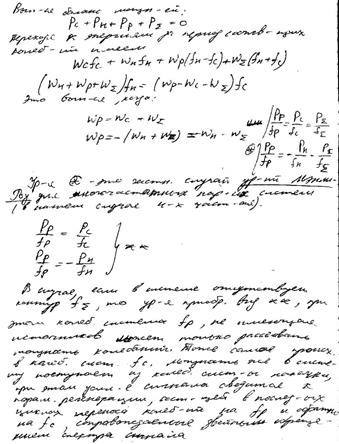 Вып-ие баланс мощн-ей:
Pc + Pн + Pр + PΣ = 0
Переходя к энергиям за период соотв-щих
колеб-ий имеем
Wcfc + Wнfн + Wp(fн-fc) + WΣ(fн+fc)
(Wн + Wp + WΣ)fн = (Wp - Wc - WΣ)fc
Это вып-ся, когда:
Wp = Wc + WΣ
Wp = -(Wн + WΣ) = -Wн - WΣ
или Pp/fp = Pc/fc = PΣ/fΣ
⊛ Pp/fp = -Pн/fн - PΣ/fΣ
Ур-я ⊛ - это частн. случай ур-ий Мэнли-
Роу для многочастотных пар-их систем
(в нашем случае 4-х част-ая).
Pp/fp = Pc/fc
Pp/fp = -Pн/fн
} **
В случае, если в системе отсутствует
контур fΣ, то ур-я приобр. вид **, при
этом колеб. система fp, не имеющая
источников может только рассеивать
мощность колебаний. Тоже самое происх.
в колеб. сист. fc, мощность же в систе-
му поступает из колеб. сист-ы накачки,
при этом усил. сигнала сводится к
парам. регенерации, сост-щей в послед-ых
циклах переноса колеб-ий на fp и обратно
на fc, сопровождаемое двойным обраще-
нием спектра сигнала